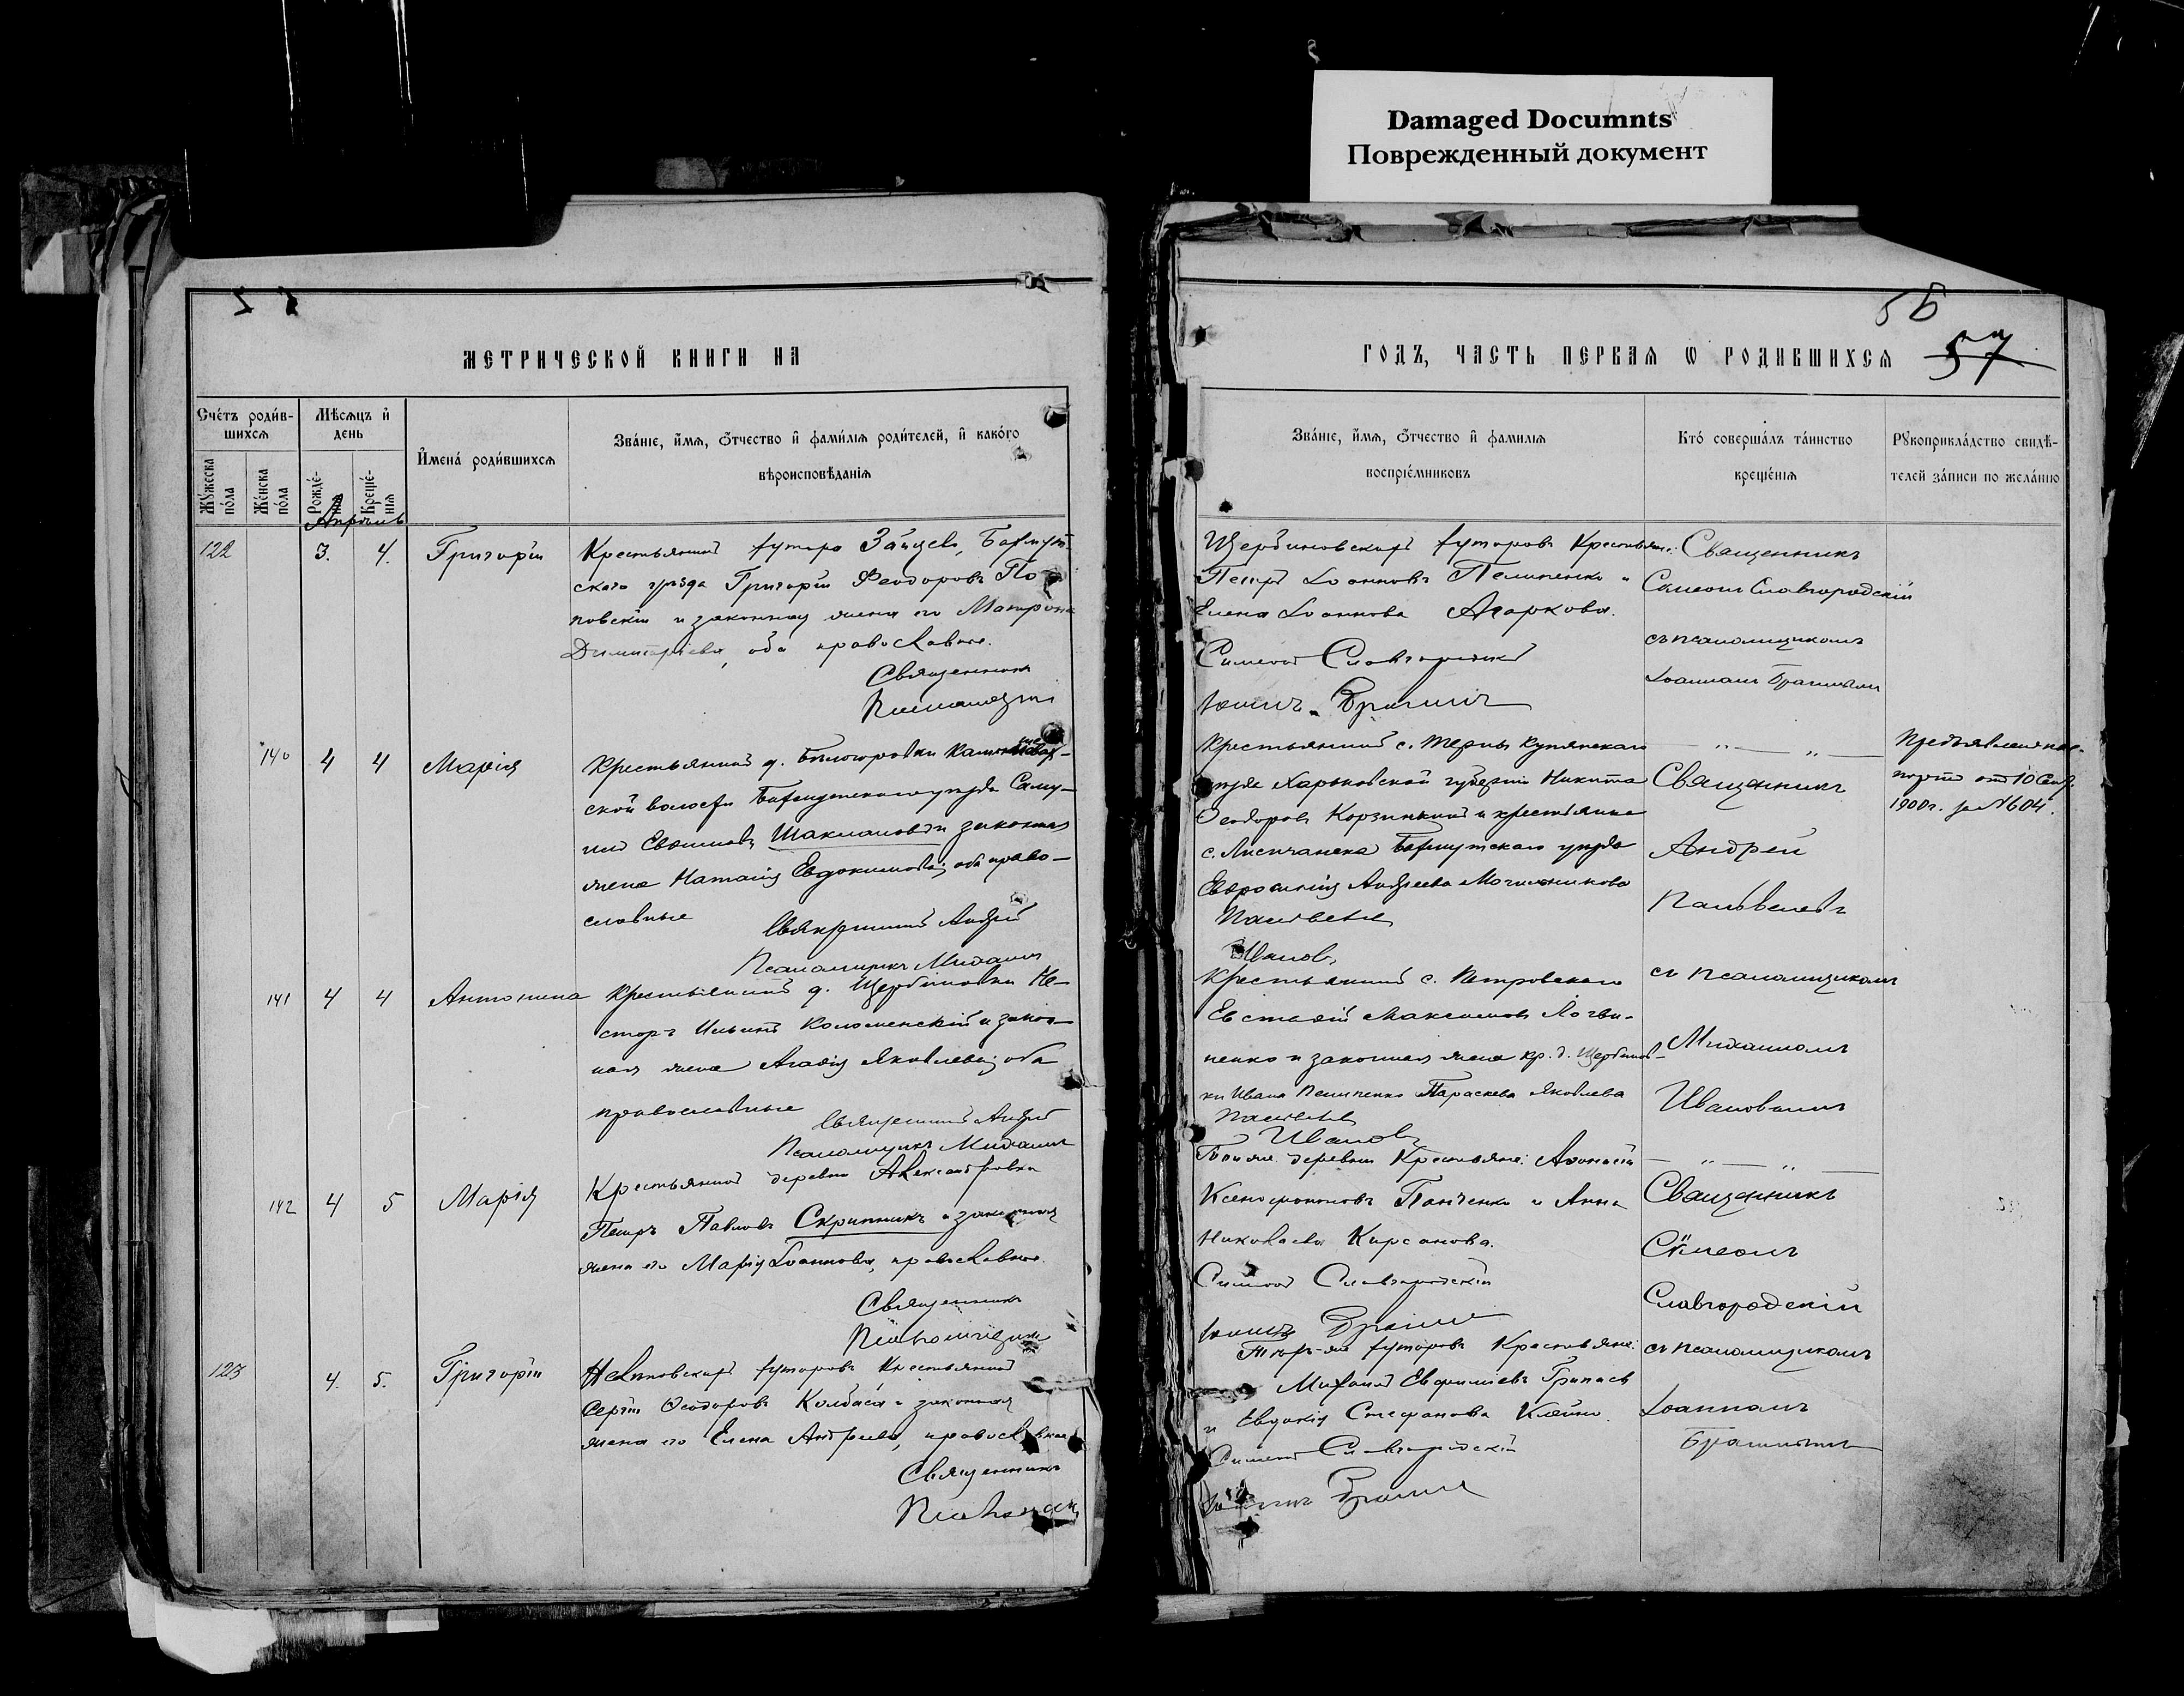 Damaged Documnts
Поврежденный документ
МЕТРИЧЕСКОЙ КНИГИ НА
Счётъ роди́в-
шихсѧ
Мѣсѧцъ и҆
день
Мꙋ́жеска
по́ла
Же́нска
по́ла
Рожде́-
нїѧ
Креще́-
нїѧ
И҆мена́ роди́вшихсѧ
Зва́нїе, и҆́мѧ, ѻ҆́тчество и҆ фами́лїѧ роди́телей, и҆ како́го
вѣроисповѣ́данїѧ
Апрѣль
122 3. 4. Григорій
Крестьянинъ хутора Зайцева, Бахмут-
скаго уѣзда Григорій Феодоровъ По-
повскій и законная жена его Матрона
Димитріева, оба православные.
Священникъ
140 4 4 Марія
Крестьянинъ д. Бѣлогоровки
ской волости Бахмутскаго уѣзда Саму-
илъ Шакмановъ и законная
жена Наталія Евдокимова; оба право-
славные
Священникъ Андрей
Псаломщикъ Михаилъ
141 4 4 Антонина
Крестьянинъ д. Щербиновки Не-
сторъ Ильинъ Коломенскій и закон-
ная жена Агафія Яковлева; оба
православные
Священникъ Андрей
Псаломщикъ Михаилъ
142 4 5 Марія
Крестьянинъ деревни Александровки
Петръ Павловъ Скрипникъ и законная
жена его Марія Іоаннова, православные.
Священникъ
Псаломщикъ
123 4. 5. Григорій
Нелѣповскихъ хуторовъ Крестьянинъ
Сергій Феодоровъ Колбаса и законная
жена его Елена Андреева, православные
Священникъ
56
57
ГОДЪ, ЧАСТЬ ПЕРВАѦ Ѡ РОДИВШИХСѦ
Зва́нїе, и҆́мѧ, ѻ҆́тчество и҆ фамилїѧ
воспрїе́мниковъ
Кто́ соверша́лъ та́инство
креще́нїѧ
Рꙋкоприкла́дство свидѣ́-
телей за́писи по жела́нїю
Щербиновскихъ хуторовъ Крестьяне:
Петръ Іоанновъ Пелипенко и
Елена Іоаннова Агаркова.
Симеонъ Славгородскій
Священникъ
Симеонъ Славгородскій
съ псаломщикомъ
Іоанномъ
Крестьянинъ с. Терны Купянскаго
уѣзда Харьковской губерніи Никита
Феодоровъ Корзинкинъ и крестьянка
с. Лисичанска Бахмутскаго уѣзда
Евфросинія Андреева
Ивановъ
— " — " —
Священникъ
Андрей
съ псаломщикомъ
Михаиломъ
Ивановымъ
Предъявленъ пас-
портъ отъ 10 Сент.
1900 г. за №604.
Крестьянинъ с. Петровскаго
Евстафій Максимовъ Логви-
ненко и законная жена кр. д. Щербинов-
ки Ивана Пелипенко Параскева Яковлева
Ивановъ
деревни Крестьяне: Афанасій
Ксенофонтовъ Панченко и Анна
Николаева Кирсанова.
Симеонъ Славгородскій
— " — " —
Священникъ
Симеонъ
Славгородскій
съ псаломщикомъ
Іоанномъ
хуторовъ Крестьяне:
Михаилъ Евфиміевъ
и Евдокія Стефанова
Симеонъ Славгородскій